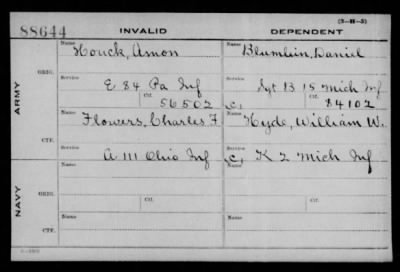 (3-H-3)
88644 INVALID DEPENDENT
Name Name
Houck, Amon Blumlein, Daniel
ORIG.
Service Service
E 84 Pa Inf Sgt B 15 Mich Inf
Ctf. Ctf.
ARMY
56502 C, 84102
Name Name
Flowers, Charles F Hyde, William W.
CTF.
Service Service
A 111 Ohio Inf C, K 2 Mich Inf
Name Name
ORIG.
Service Ctf. Service Ctf.
NAVY
Name Name
CTF.
Service Service